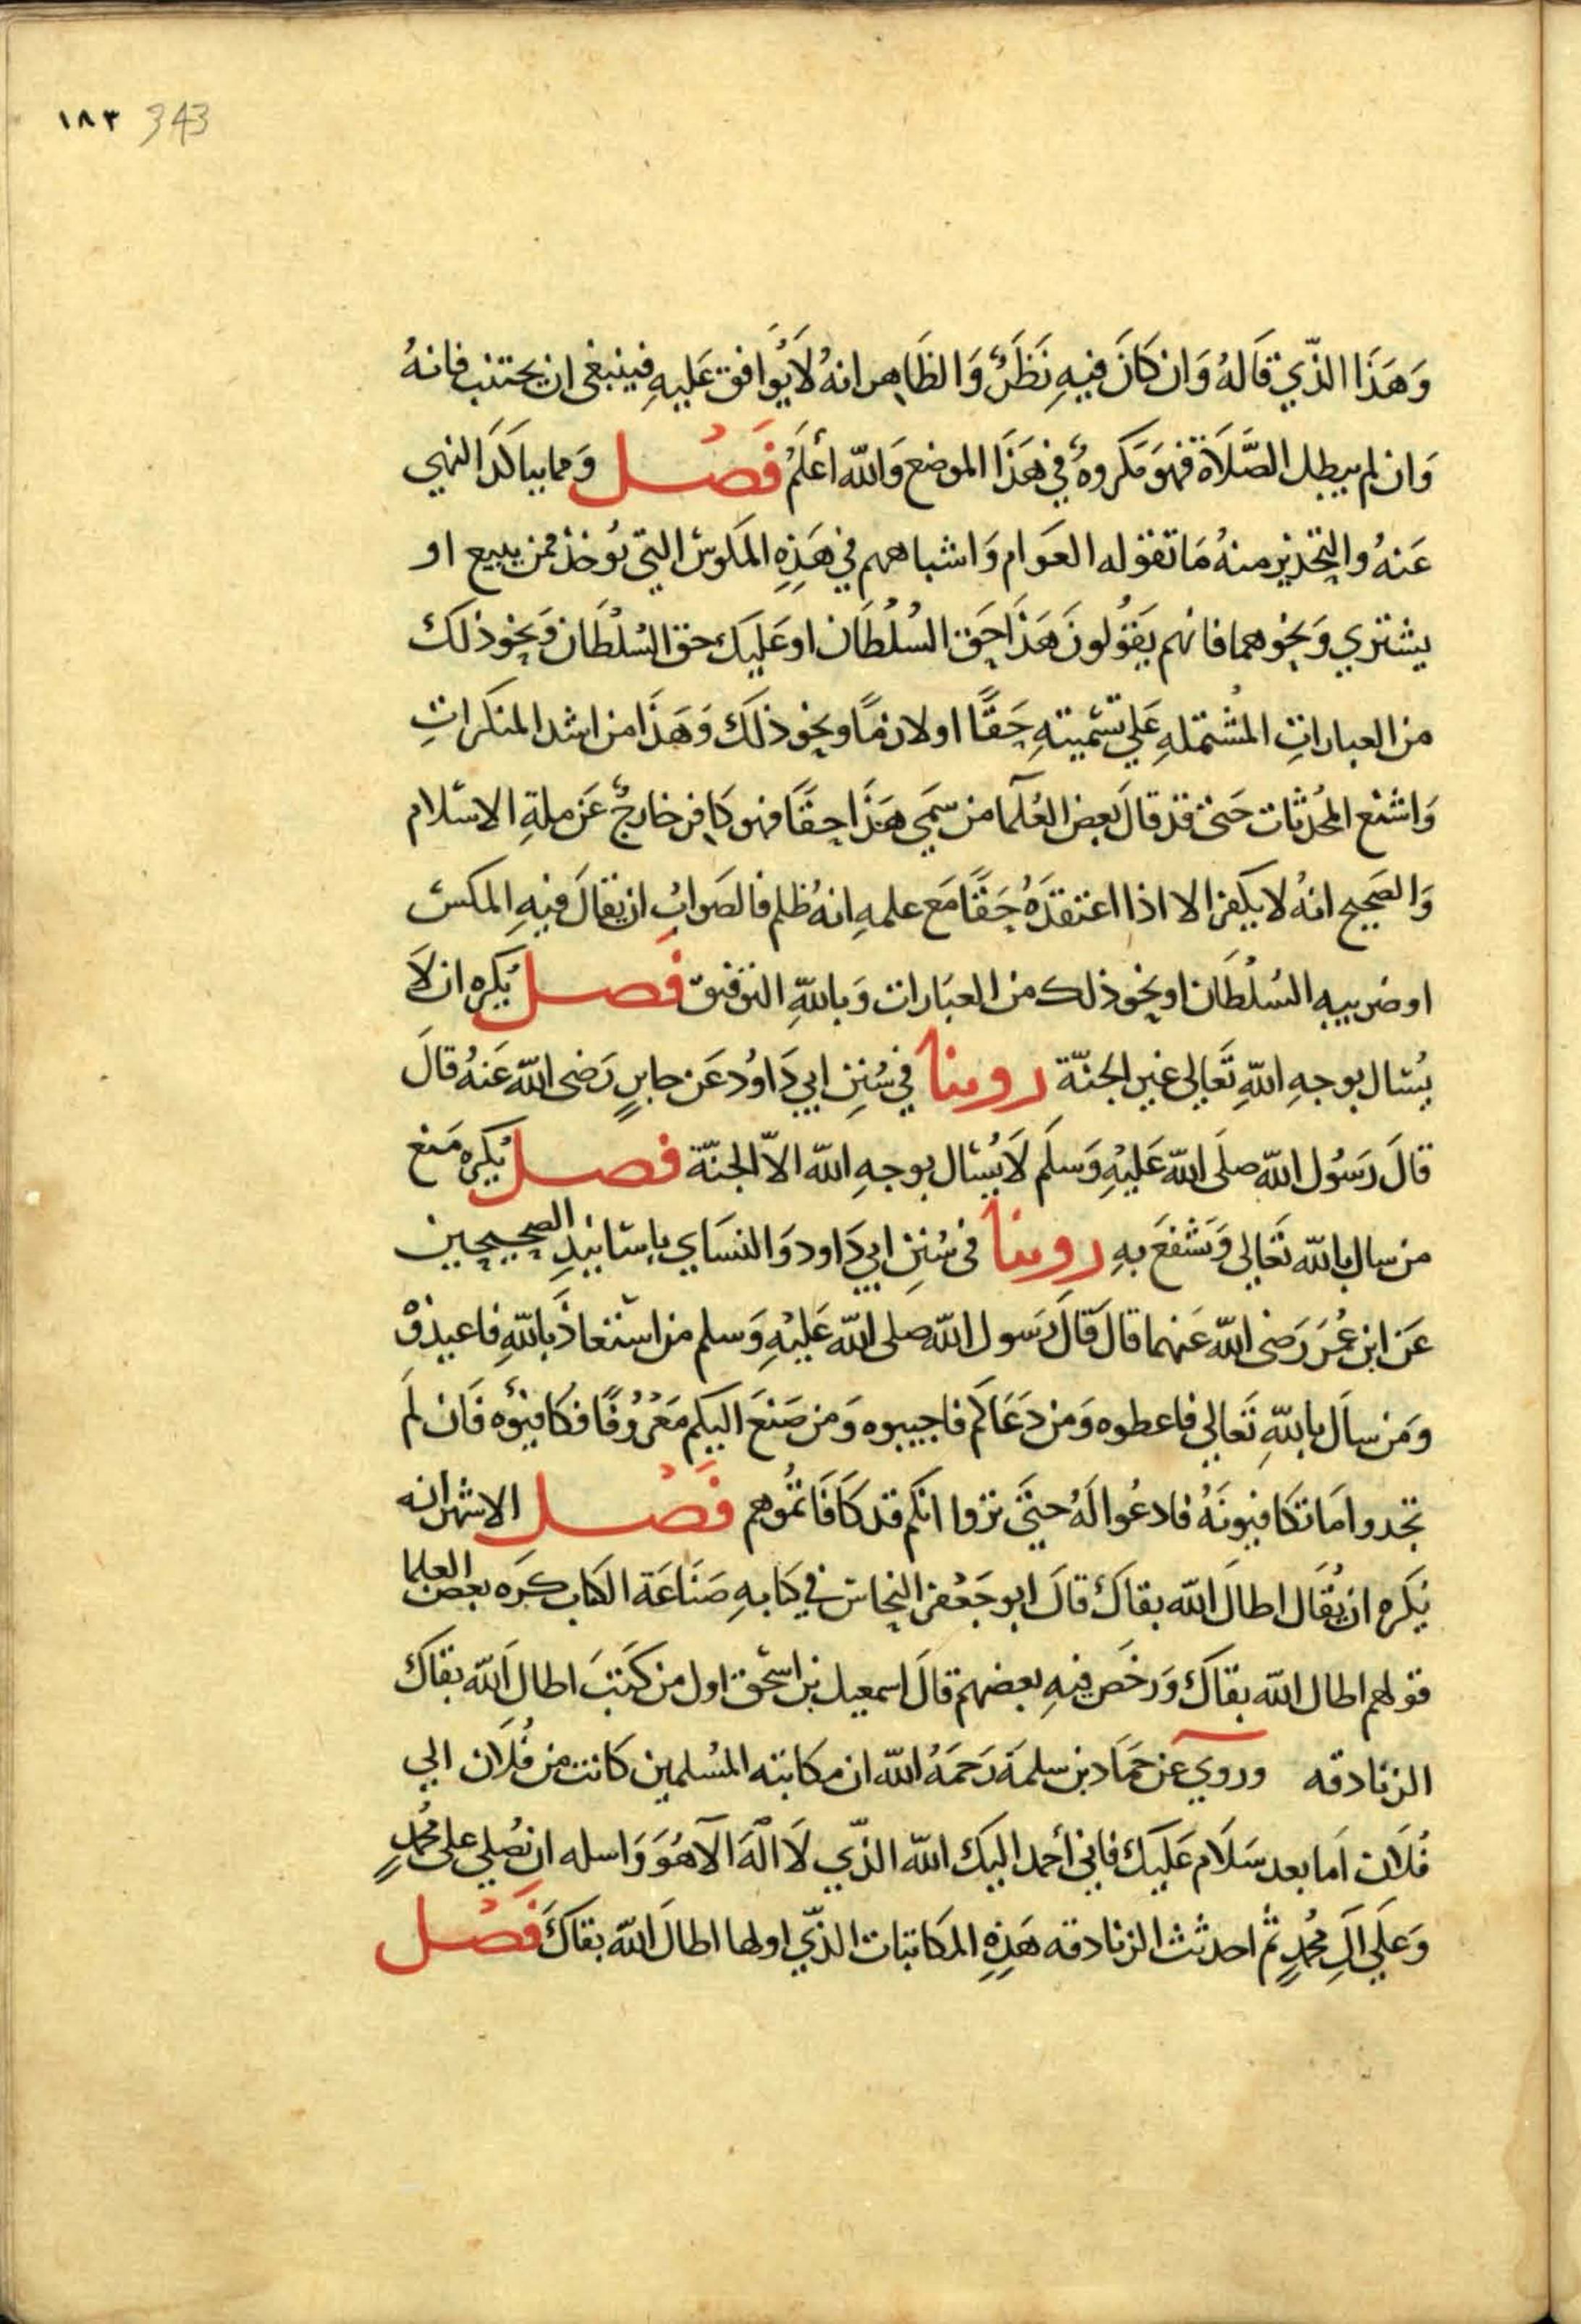 ١٨٣ 343
وَهَذَا الذّي قَالهُ وَان كَانَ فيهِ نَظَرٌ وَالظَاهِر انهُ لَا يُوَافق عَليهِ فينبغى ان يجتنب فانهُ
وَان لم يبطل الصَّلَاة فهوَ مَكروهٌ في هَذَا الموضع وَالله أعْلَمُ فَصْل وَمما يتاكدَ النهي
عَنهُ والتحذير منهُ مَا تقوله العَوام وَاشباههم في هَذِهِ المَكوس التي تؤخذ ممن يبيع او
يشتري وَنحوهما فانهم يَقُولونَ هَذَا حَق السُلْطَان او عَليكَ حق السُلْطَان وَنحو ذلك
من العباراتِ المُشتملهِ عَلي تسْميتهِ حَقًا او لازمًا ونحو ذلك وَهَذَا من اشد المنكراتِ
وَاشنع المُحدثات حَتى قد قالَ بَعض العُلمَا من سَمي هَذَا حقًا فهو كَافر خارجٌ عَن ملةِ الاسْلام
وَالصَحيح انهُ لا يكفر الا اذا اعتقدَهُ حَقًا مَع علمهِ انهُ ظلم فالصَوابُ ان يقالَ فيهِ المكسْ
او ضريبه السُلْطَان او نحو ذلك من العبَارات وَباللهِ التوفيق فَصل يُكره ان لَا
يُسْال بوجهِ اللهِ تَعَالى غير الجنّة روينا في سُنَنِ ابي دَاوُد عَن جابرٍ رَضى الله عَنهُ قالَ
قالَ رَسُول الله صلَى الله عَليْهِ وَسلَم لَا يُسْال بوجهِ الله الاّ الجنّة فصل يُكره مَنع
من سال بالله تَعَالى وَتشْفعَ بهِ روينا في سُنَنِ ابي دَاود وَالنسَاي باسَانيدِ الصحيحين
عَن ابن عُمَرَ رَضى الله عَنهما قالَ قَالَ رَسول الله صلى الله عَليْهِ وَسلم من اسْتعَاذَ باللهِ فاعيذوْ
وَمَن سالَ باللهِ تَعَالي فاعطوه وَمن دَعَاكم فاجيبوه وَمن صَنعَ اليكم مَعْرُوفًا فكافئوْه فَان لَم
تجدوا مَا تكَافيونَهُ فادعُوا لَهُ حتىَ تروا انكم قد كَافَاتمُوهم فَصْل الاشهر انه
يُكره ان يُقَال اطالَ الله بقاكَ قالَ ابو جَعْفر النحاسْ في كتابهِ صَنَاعَة الكتاب كَرَه بعض العلما
قولهم اطال الله بقاكَ وَرخصَ فيهِ بعضهم قالَ اسمعيل بن اسْحق اول من كَتبَ اطالَ الله بقاكَ
الزنادقه وروي عَن حَمَاد بن سلمَة رَحمَهُ الله ان مكاتبَه المُسْلمين كانت من فُلَان الي
فُلَان اَما بعد سَلَام عَليكَ فاني أحمد اليكَ الله الذّي لَا الَهَ الَا هُوَ وَاسله ان يُصَلي على مُحمدٍ
وَعَلَي آلِ مُحمدٍ ثم احدثت الزنادقه هَذِهِ المكاتبات الذّي اولها اطالَ الله بقاكَ فَصْل